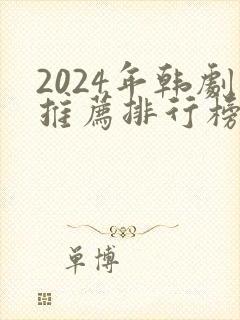 2024年韩劇
推薦排行榜
单博